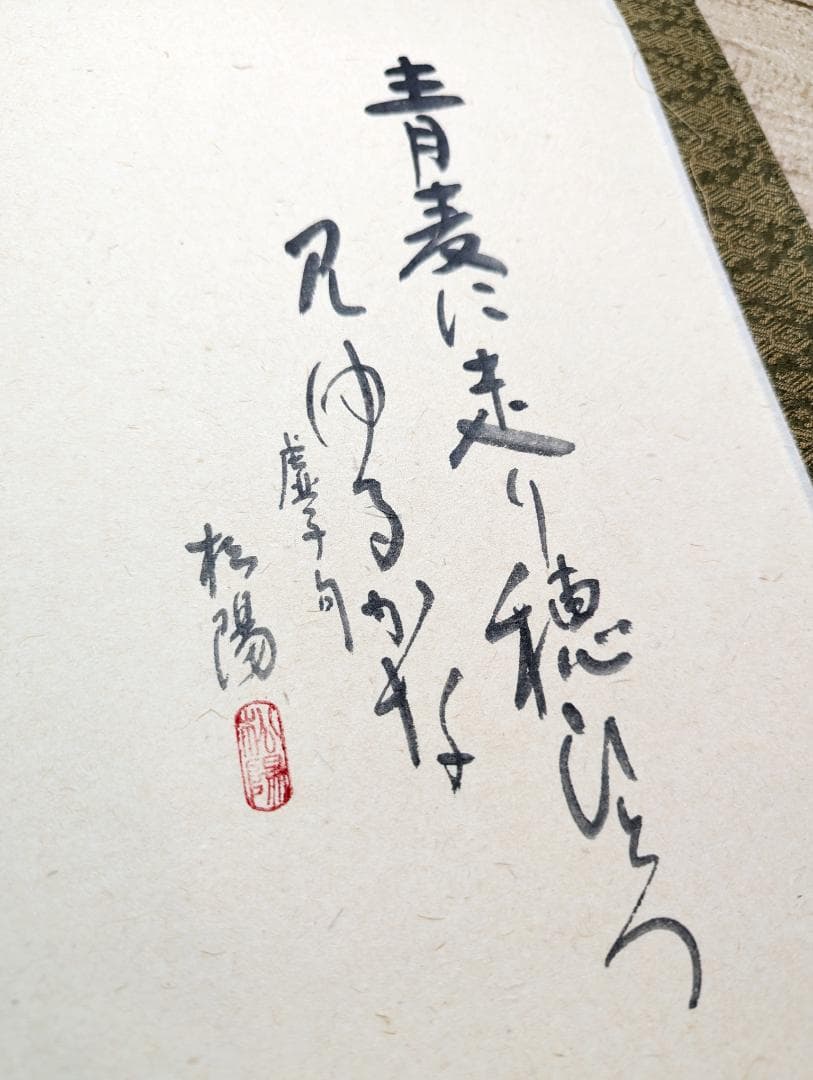 青麦に走り穂ひとつ
見ゆるかな
虚子句
松陽
松陽